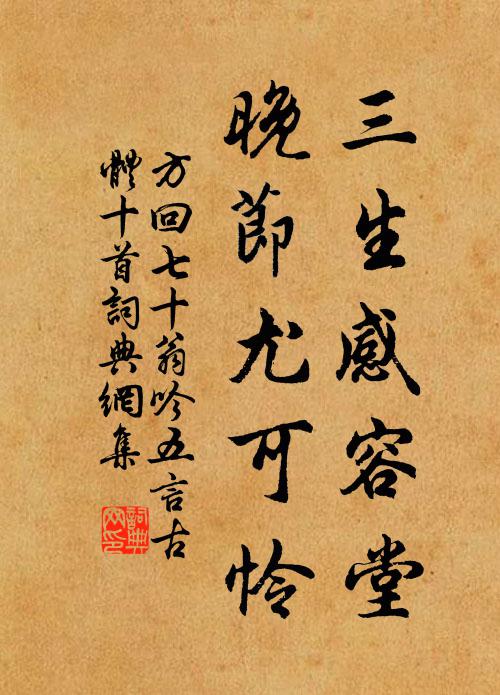 三生感容堂
晚節尤可怜
方回七十翁吟五言古
體十首詞典網集
詞典